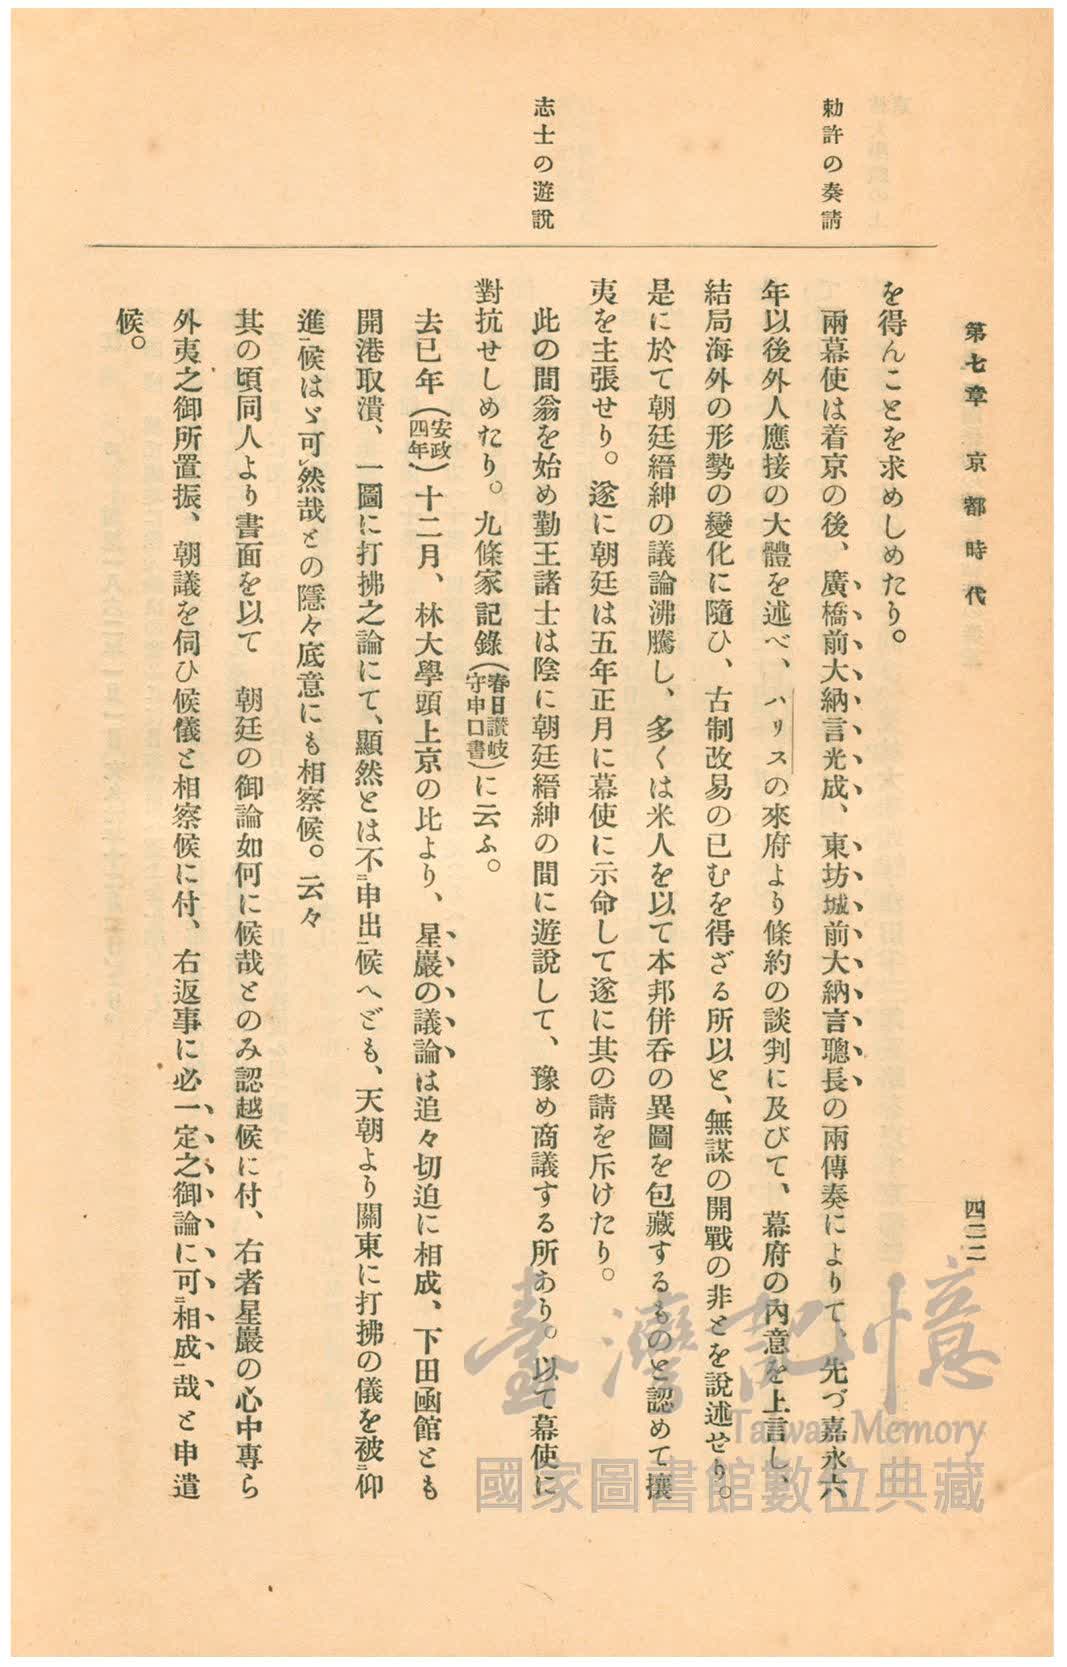 第七章 京都時代
四二二
勅許の奏請
志士の遊說
を得んことを求めしめたり。
兩幕使は着京の後、廣橋前大納言光成、東坊城前大納言聰長の兩傳奏によりて、先づ嘉永六
年以後外人應接の大體を述べ、ハリスの來府より條約の談判に及びて、幕府の內意を上言し、
結局海外の形勢の變化に隨ひ、古制改易の已むを得ざる所以と、無謀の開戰の非とを說述せり。
是に於て朝廷縉紳の議論沸騰し、多くは米人を以て本邦併呑の異圖を包藏するものと認めて攘
夷を主張せり。遂に朝廷は五年正月に幕使に示命して遂に其の請を斥けたり。
此の間翁を始め勤王諸士は陰に朝廷縉紳の間に遊說して、豫め商議する所あり。以て幕使に
對抗せしめたり。九條家記錄(春日讃岐守申口書)に云ふ。
去巳年(安政四年)十二月、林大學頭上京の比より、星巖の議論は追々切迫に相成、下田凾館とも
開港取潰、一圖に打拂之論にて、顯然とは不二申出一候へども、天朝より關東に打拂の儀を被二仰
進一候はゞ可レ然哉との隱々底意にも相察候。云々
其の頃同人より書面を以て 朝廷の御論如何に候哉とのみ認越候に付、右者星巖の心中專ら
外夷之御所置振、朝議を伺ひ候儀と相察候に付、右返事に必一定之御論に可二相成一哉と申遣
候。
臺灣記憶
Taiwan Memory
國家圖書館數位典藏